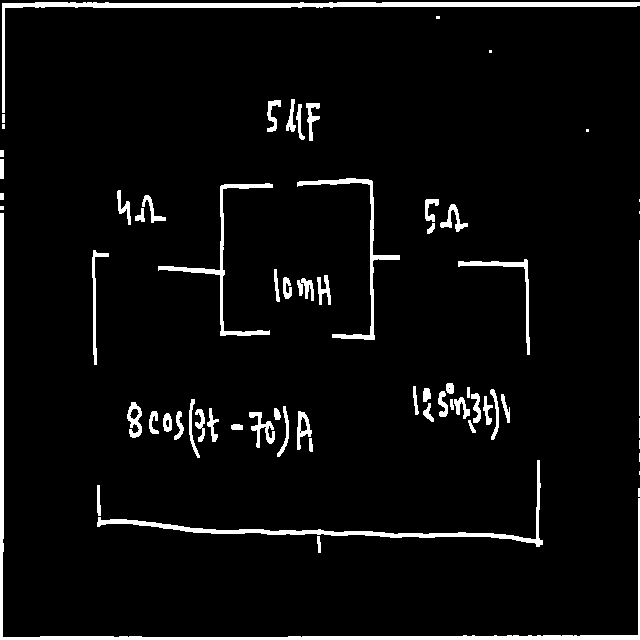 5 μF
4Ω
5Ω
10mH
8cos(3t - 70°) A
12sin(3t) V